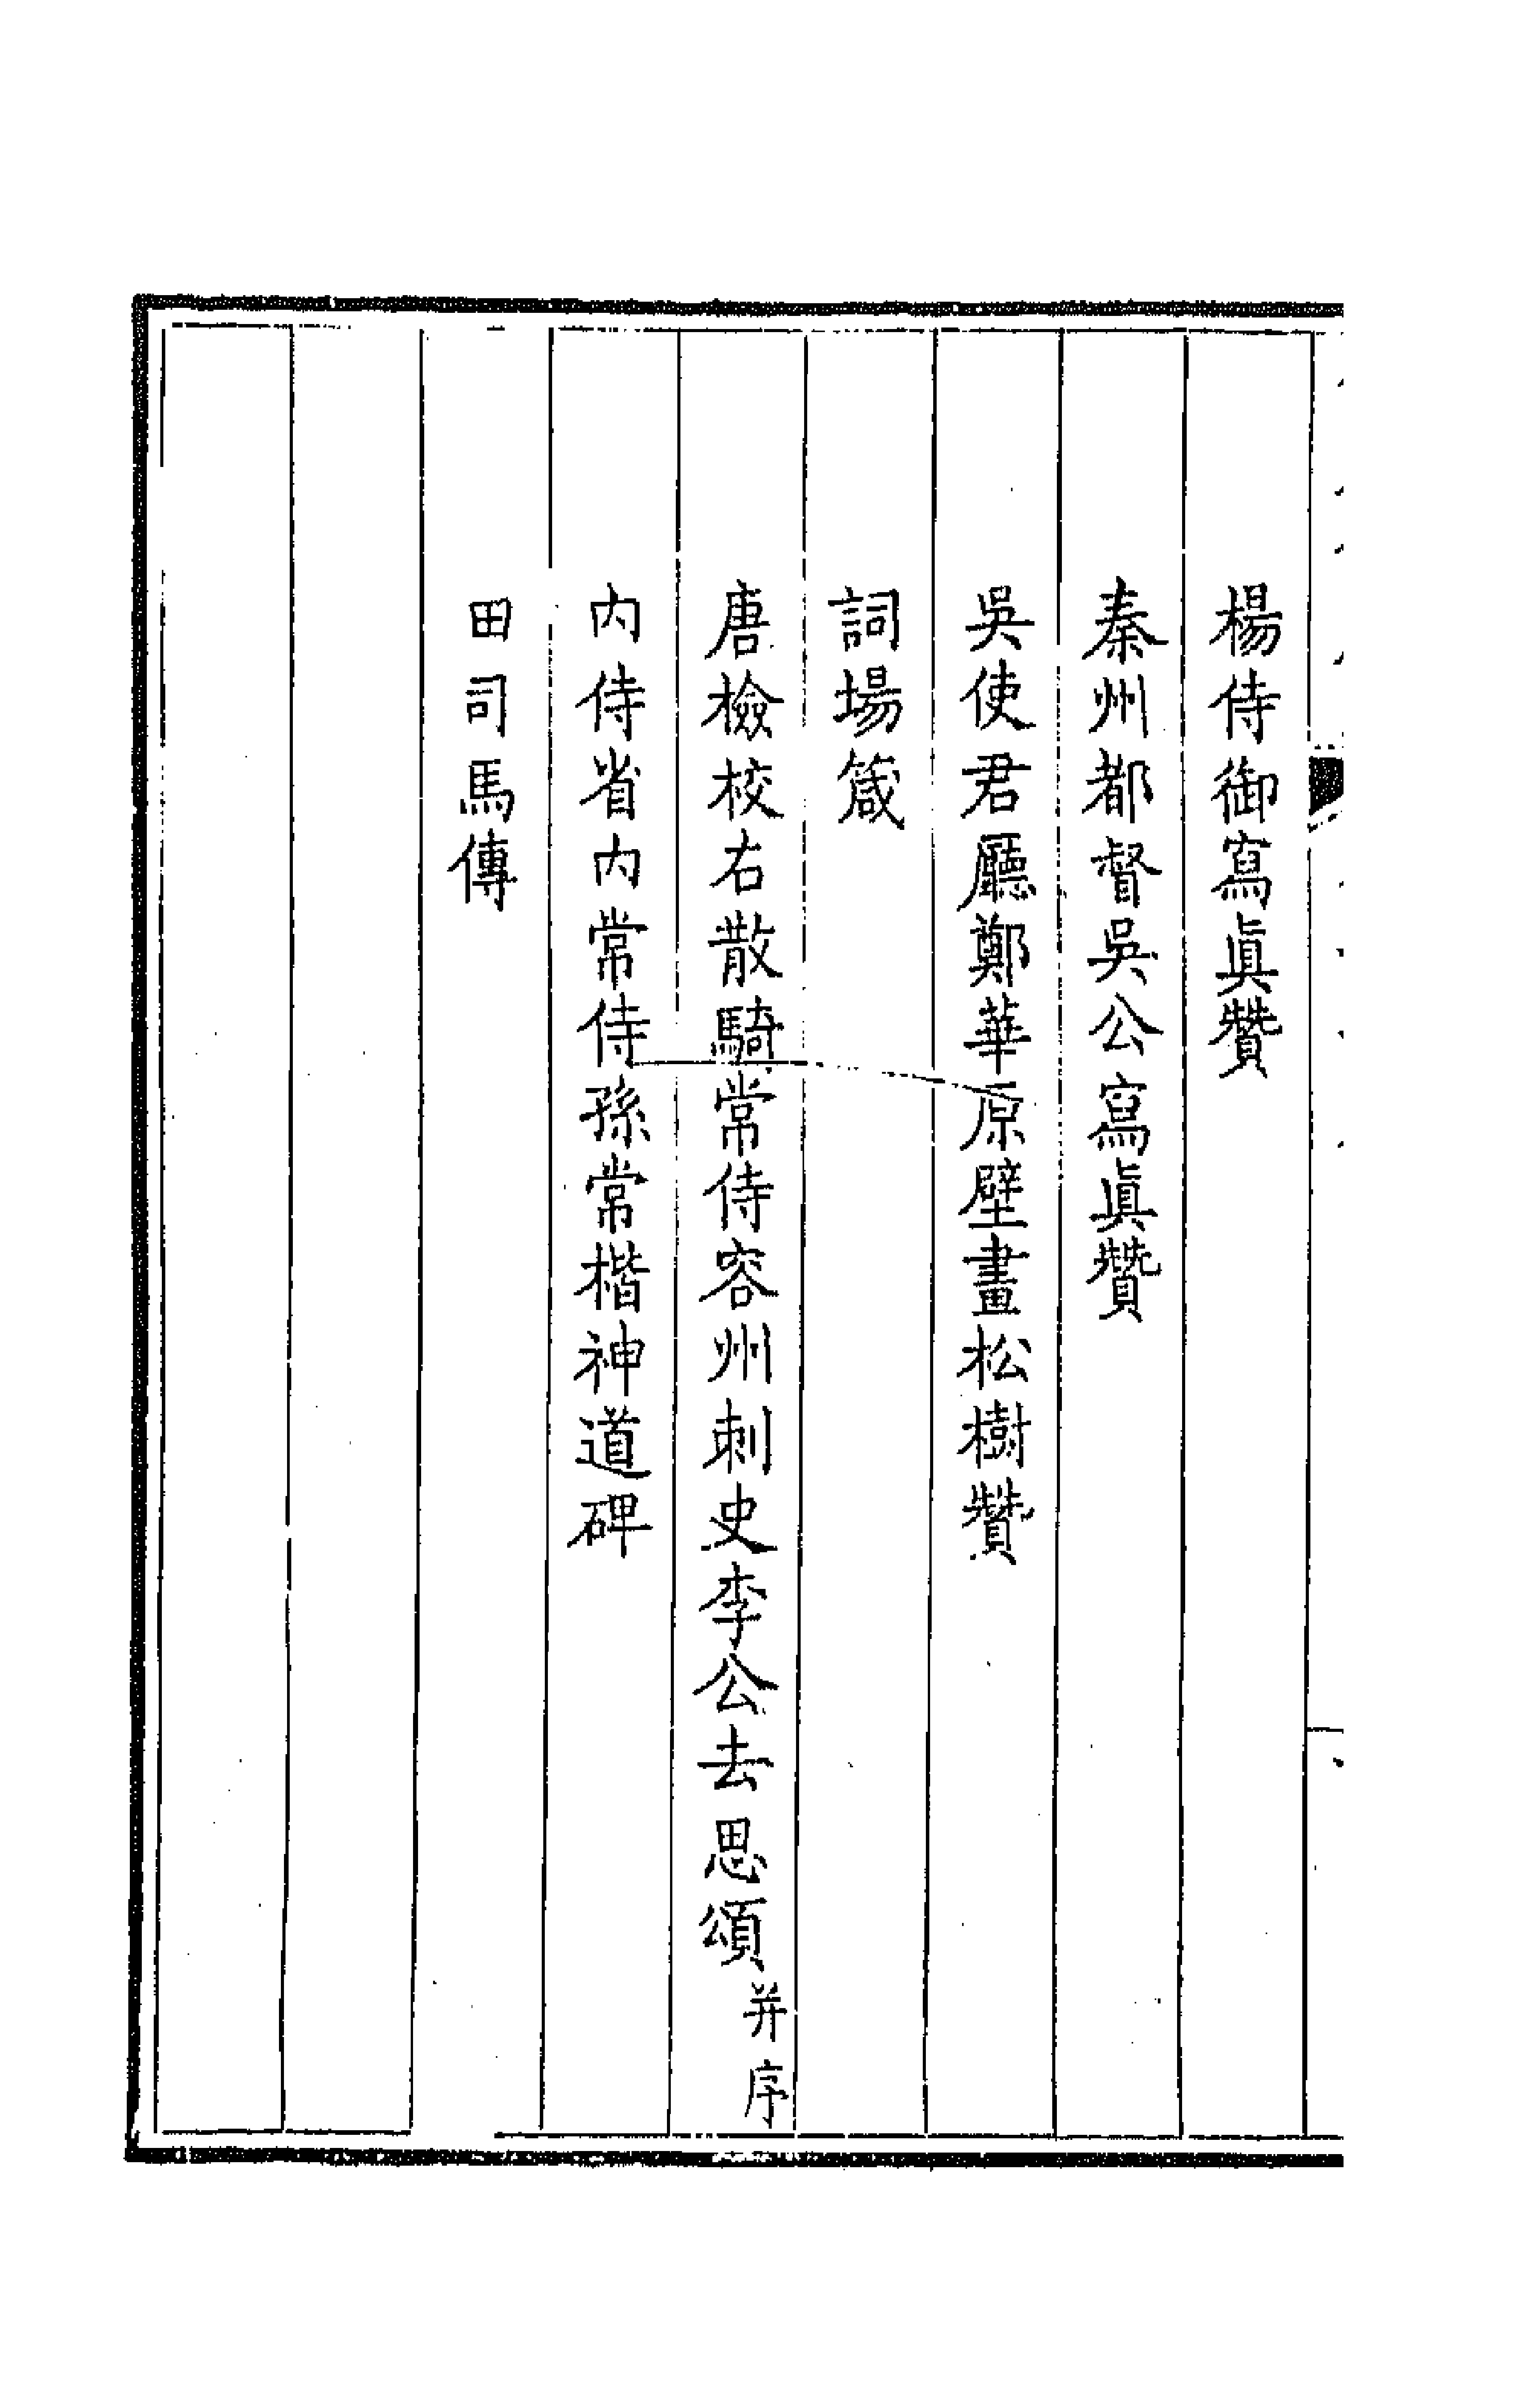 楊侍御寫眞贊
秦州都督吳公寫眞贊
吳使君廳鄭華原壁畫松樹贊
詞場箴
唐檢校右散騎常侍容州刺史李公去思頌并序
内侍省内常侍孫常楷神道碑
田司馬傳